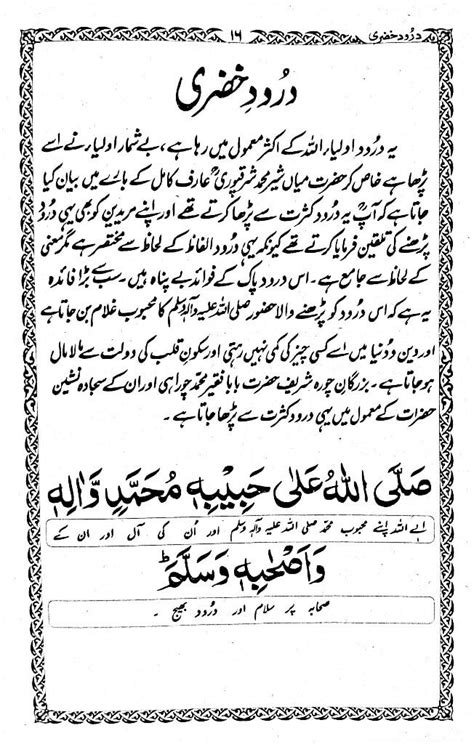 درُود خضری
۱۶
درُودِ خضری
یہ درُود اولیاء اللہ کے اکثر معمول میں رہا ہے، بے شمار اولیاء نے اسے
پڑھا ہے خاص کر حضرت میاں شیر محمد شرقپوریؒ عارف کامل کے بارے میں بیان کیا
جاتا ہے کہ آپؒ یہ درُود کثرت سے پڑھا کرتے تھے اور اپنے مریدین کو بھی یہی درُود
پڑھنے کی تلقین فرمایا کرتے تھے کیونکہ یہی درُود الفاظ کے لحاظ سے مختصر ہے مگر معنی
کے لحاظ سے جامع ہے۔ اس درود پاک کے فوائد بے پناہ ہیں۔ سب سے بڑا فائدہ
یہ ہے کہ اس درُود کو پڑھنے والا حضور صلی اللہ علیہ وآلہٖ وسلم کا محبوب غلام بن جاتا ہے
اور دین و دُنیا میں اسے کسی چیز کی کمی نہیں رہتی اور سکونِ قلب کی دولت سے مالا مال
ہو جاتا ہے۔ بزرگانِ چورہ شریف حضرت بابا فقیر محمد چوراہی اور ان کے سجادہ نشین
حضرات کے معمول میں یہی درود کثرت سے پڑھا جاتا ہے۔
صَلَّی اللّٰہُ عَلٰی حَبِیْبِہٖ مُحَمَّدٍ وَّاٰلِہٖ
اے اللہ اپنے محبوب محمد صلی اللہ علیہ وآلہٖ وسلم اور اُن کی آل اور ان کے
وَاَصْحٰبِہٖ وَسَلَّمَ ؕ
صحابہ پر سلام اور درُود بھیج ۔